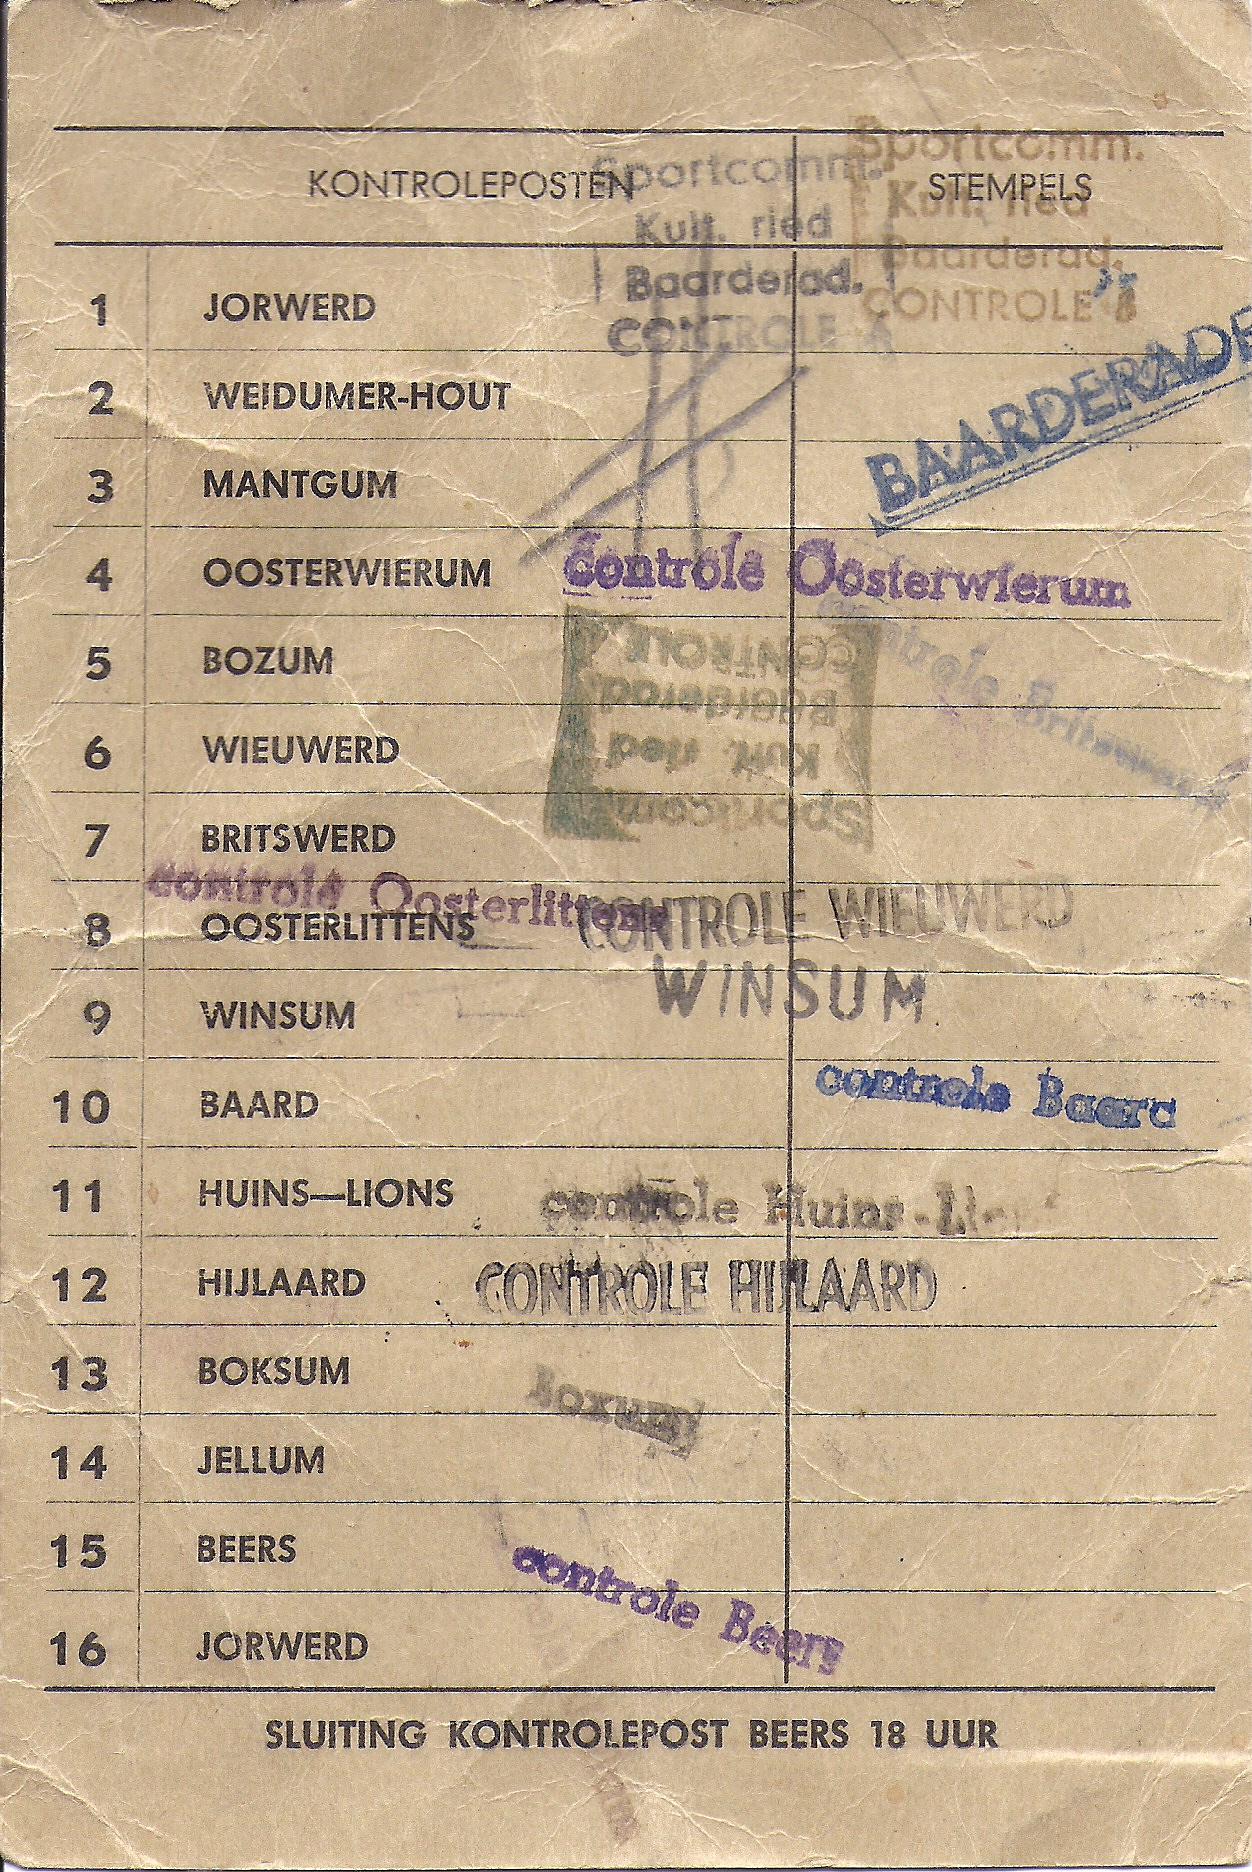 KONTROLEPOSTEN STEMPELS
Sportcomm.
Kult. ried
Baarderad.
CONTROLE A
Sportcomm.
Kult. ried
Baarderad.
CONTROLE
1 JORWERD
2 WEIDUMER-HOUT
BAARDERADE
3 MANTGUM
4 OOSTERWIERUM controle Oosterwierum
5 BOZUM
controle Britswerd
CONTROLE
Baarderad.
Kult. ried
Sportcomm.
6 WIEUWERD
7 BRITSWERD
controle Oosterlittens
8 OOSTERLITTENS CONTROLE WIEUWERD
WINSUM
9 WINSUM
10 BAARD controle Baard
11 HUINS—LIONS controle Huins-Li-
12 HIJLAARD CONTROLE HIJLAARD
13 BOKSUM Boxum
14 JELLUM
15 BEERS controle Beers
16 JORWERD
SLUITING KONTROLEPOST BEERS 18 UUR